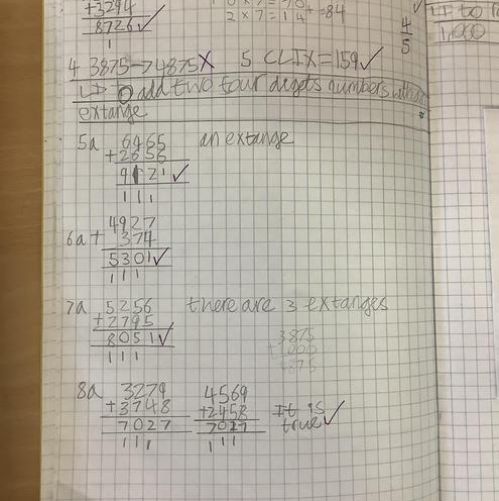 +3294
8726✓
1
2 x 7 = 14 + = 84
4
5
1,000
4 3875→4875 X 5 CLIX=159✓
LI to add two four digets numbers with
extange
5a 6465 an extange
+2656
9121✓
111
4927
6a + 374
5301✓
111
7a 5256 there are 3 extanges
+2795
8051✓
111
3875
8a 3279 4569
+3748 +2458 It is
7027 7027 true✓
111 111